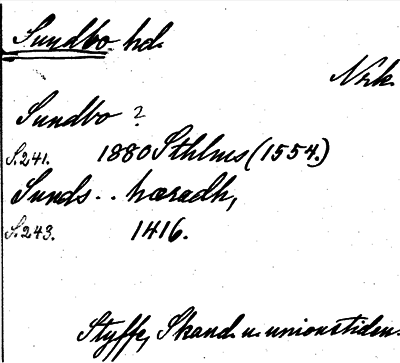 Sundbo hd.
Nrk.
Sundbo ?
S. 241. 1880 Sthlms (1554.)
Sunds .. hæradh,
S. 243. 1416.
Styffe, Skand. u. unionstiden.